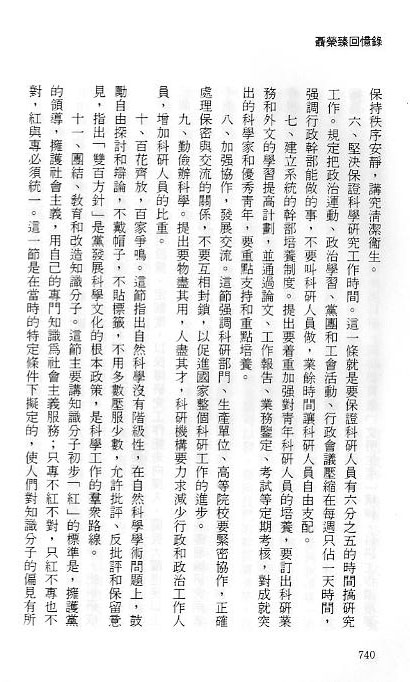 聶榮臻回憶錄
保持秩序安靜，講究清潔衞生。
六、堅決保證科學研究工作時間。這一條就是要保證科研人員有六分之五的時間搞研究
工作。規定把政治運動、政治學習、黨團和工會活動、行政會議壓縮在每週只佔一天時間，
強調行政幹部能做的事，不要叫科研人員做，業餘時間讓科研人員自由支配。
七、建立系統的幹部培養制度。提出要着重加强對青年科研人員的培養，要訂出科研業
務和外文的學習提高計劃，並通過論文、工作報告、業務鑒定、考試等定期考核，對成就突
出的科學家和優秀青年，要重點支持和重點培養。
八、加强協作，發展交流。這節强調科研部門、生產單位、高等院校要緊密協作，正確
處理保密與交流的關係，不要互相封鎖，以促進國家整個科研工作的進步。
九、勤儉辦科學。提出要物盡其用，人盡其才，科研機構要力求減少行政和政治工作人
員，增加科研人員的比重。
十、百花齊放，百家爭鳴。這節指出自然科學沒有階級性，在自然科學學術問題上，鼓
勵自由探討和辯論，不戴帽子，不貼標籤，不用多數壓服少數，允許批評、反批評和保留意
見，指出「雙百方針」是黨發展科學文化的根本政策，是科學工作的羣衆路線。
十一、團結、敎育和改造知識分子。這節主要講知識分子初步「紅」的標準是，擁護黨
的領導，擁護社會主義，用自己的專門知識爲社會主義服務；只專不紅不對，只紅不專也不
對，紅與專必須統一。這一節是在當時的特定條件下擬定的，使人們對知識分子的偏見有所
740